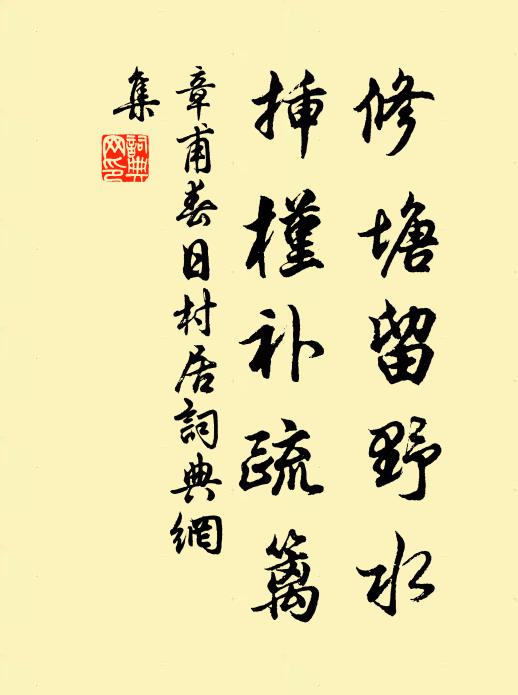 修塘留野水
插槿补疏篱
章甫春日村居詞典網
集
詞典網印